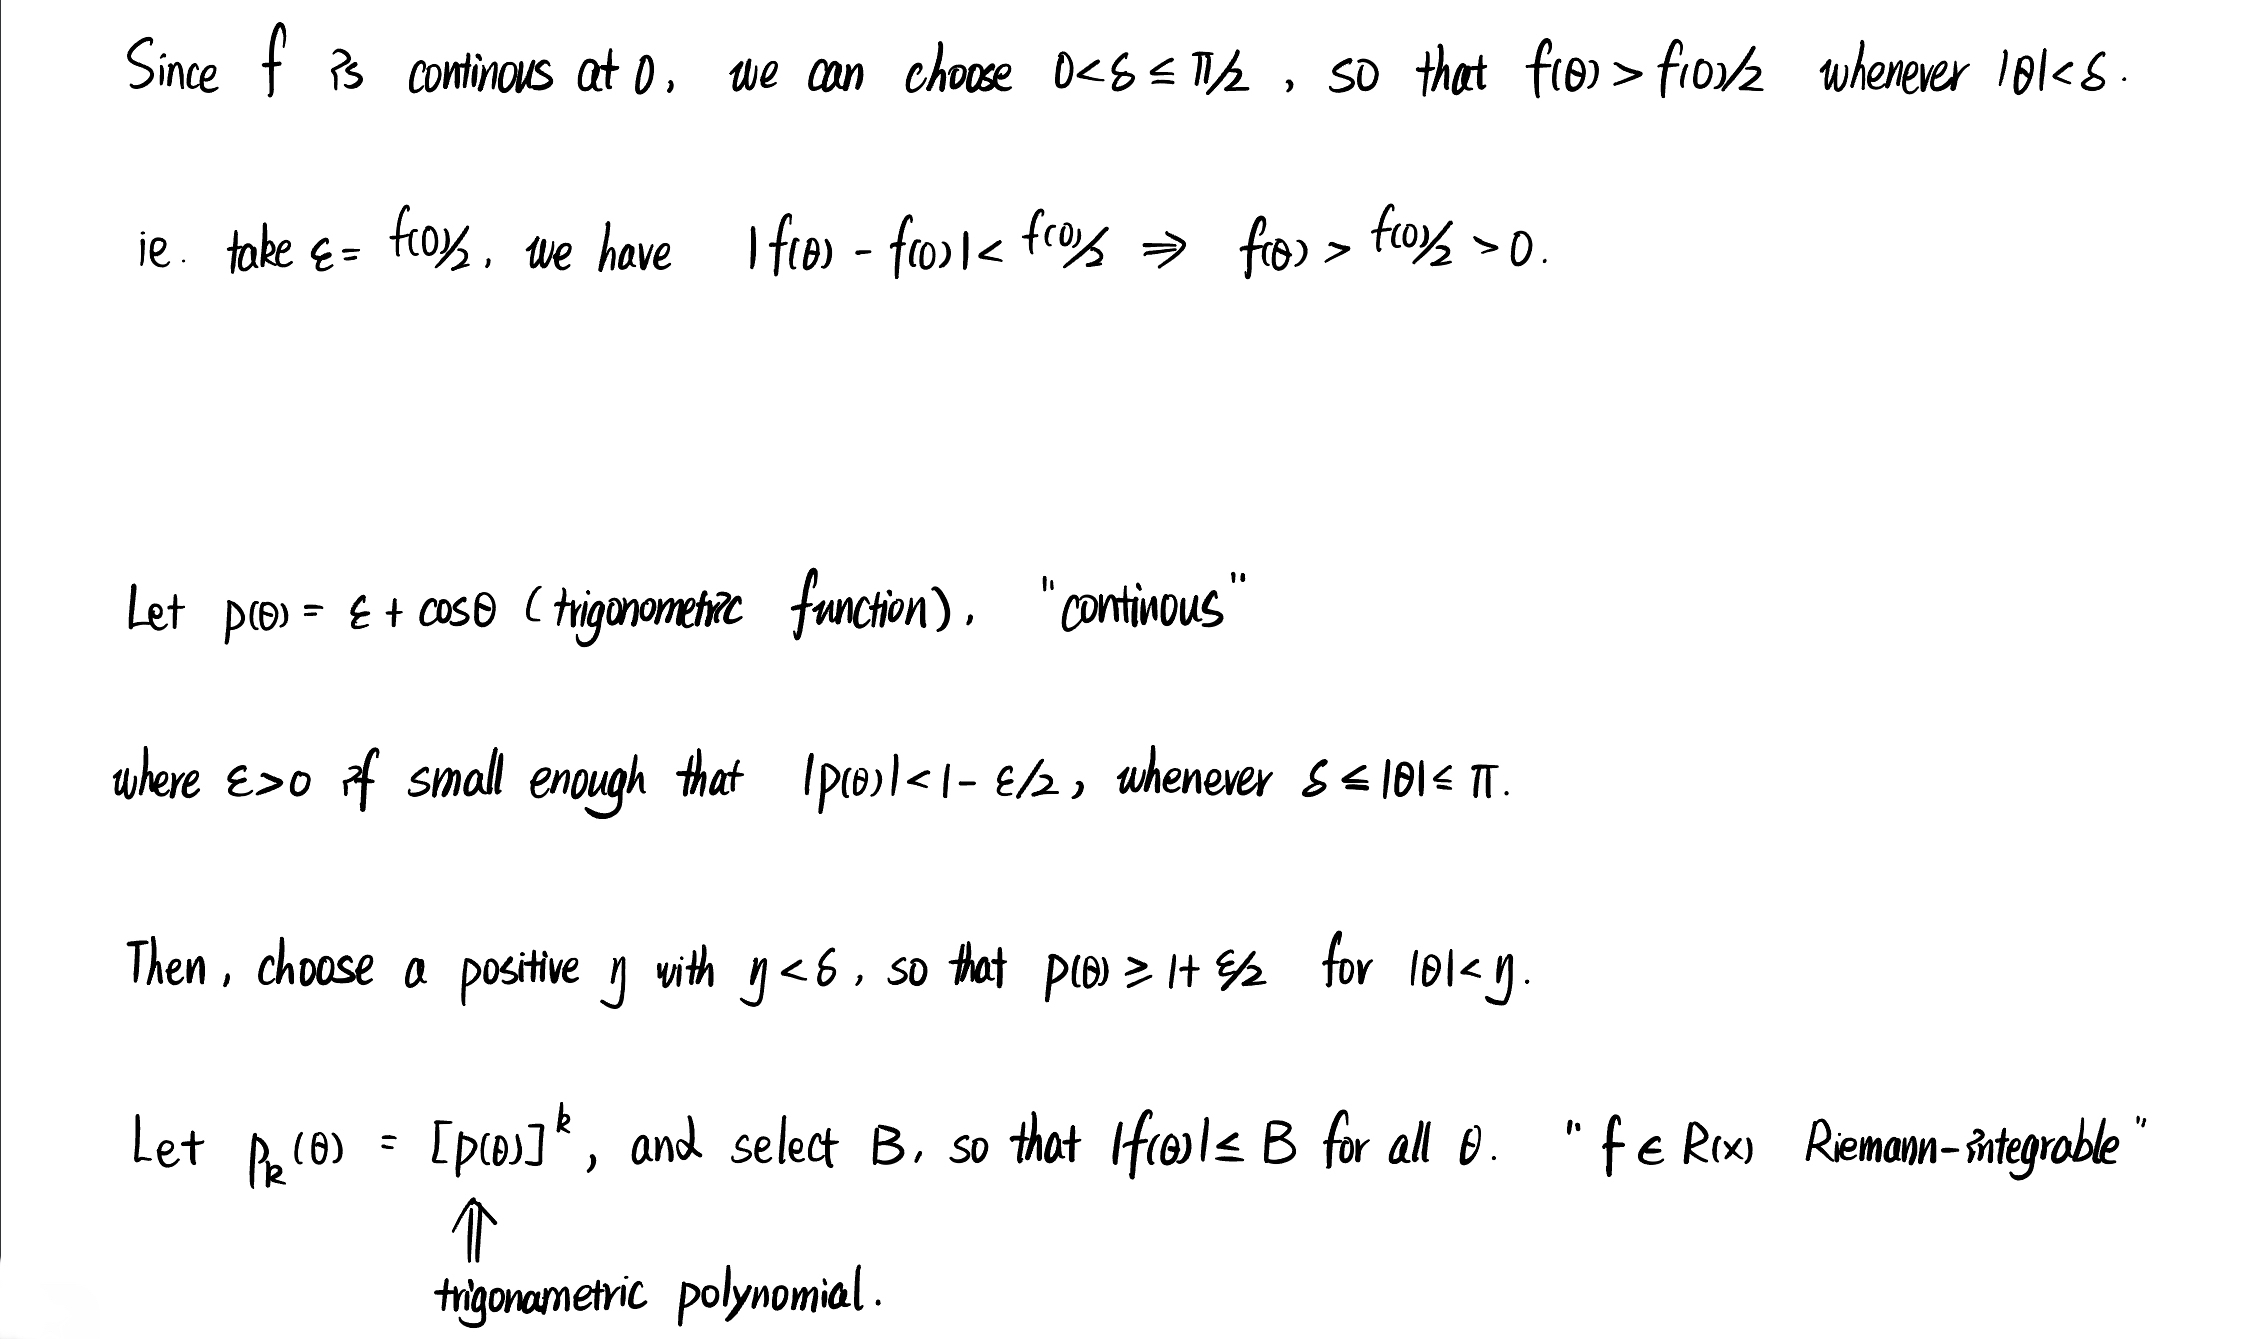 Since f is continous at 0, we can choose 0<δ≤π/2, so that f(θ)>f(0)/2 whenever |θ|<δ.
ie. take ε= f(0)/2, we have |f(θ) - f(0)|< f(0)/2 ⇒ f(θ) > f(0)/2 >0.
Let p(θ) = ε + cosθ (trigonometric function). "continous"
where ε>0 if small enough that |p(θ)|<1- ε/2, whenever δ ≤|θ|≤ π.
Then, choose a positive η with η<δ, so that p(θ) ≥ 1+ ε/2 for |θ|<η.
Let pₖ(θ) = [p(θ)]ᵏ, and select B, so that |f(θ)|≤ B for all θ. "f ∈ R(x) Riemann-integrable"
⇑
trigonametric polynomial.